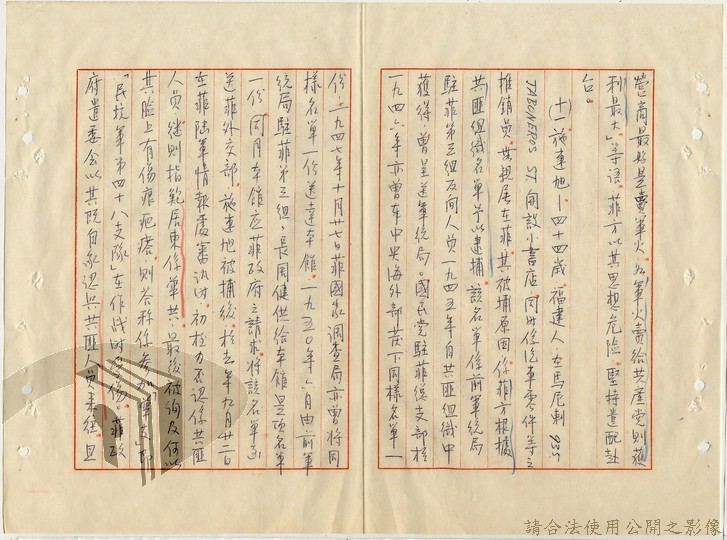 營商最好是賣軍火，如軍火賣給共產党則獲
利最大」等語，菲方以其思想危險，堅持遣配赴
台。
(十一)施連旭—四十四歲，福建人，在馬尼剌 935
JABONEROS ST 開設小書店，同時係汽車零件等之
推銷員，其親屬在菲，其被捕原因，係菲方根據
共匪組織名單予以逮捕，該名單係前軍統局
駐菲第三組反间人員一九四五年自共匪組織中
獲得，曾呈送軍統局。國民党駐菲總支部於
一九四六年亦曾在中央海外部芪下同樣名單一
份，一九四七年十月廿七日菲國家調查局亦曾將同
樣名單一份送達本館。一九五〇年八月由前軍
統局駐菲第三組長周健供給本館是項名單
一份，同月本館應菲政府之請求將該名單函
送菲外交部。施連旭被捕後，於去年九月廿二日
在菲陸軍情報處審訊時，初極力否認係共匪
人員，繼則指範居東係軍共，最後被询及何以
其脸上有傷痕疤瘩，則答称係參加
「民抗軍第四十八支隊」在作战时受傷。菲政
府遣委会以其既自承認與共匪人員来往，且
請合法使用公開之影像